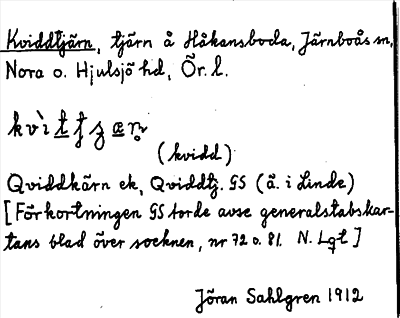 Kviddtjärn, tjärn å Håkansboda, Järnboås sn,
Nora o. Hjulsjö hd, Ör. l.
kvìttʒæṇ
(kvidd)
Qviddkärn ek, Qviddtj. GS (å. i Linde)
[Förkortningen GS torde avse generalstabskar-
tans blad över socknen, nr 72 o. 81. N. Lgt]
Jöran Sahlgren 1912